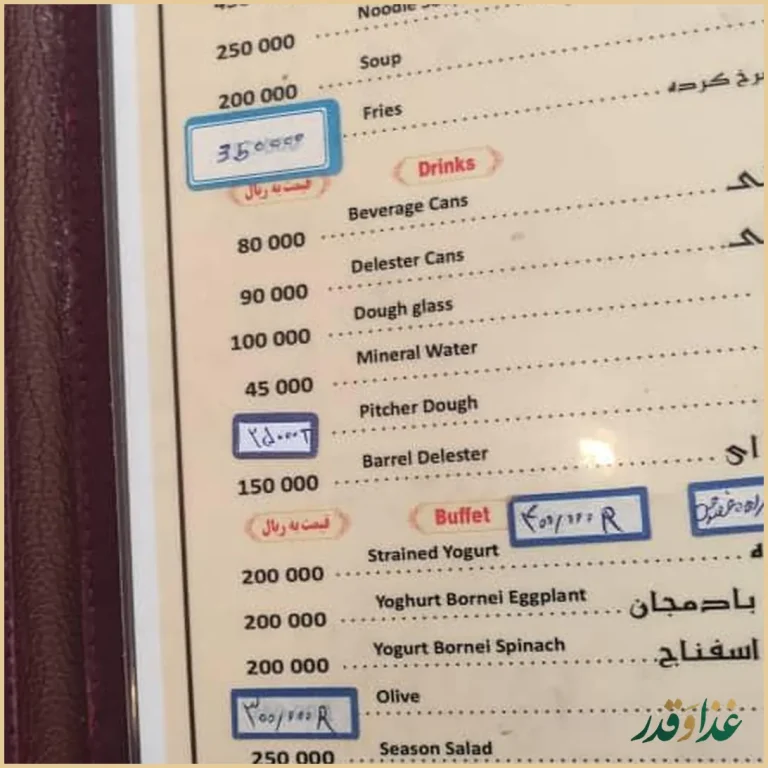 250 000
Soup
200 000
Fries
سرخ کرده
350000
Drinks
قیمت به ریال
Beverage Cans
80 000
Delester Cans
90 000
Dough glass
100 000
Mineral Water
45 000
Pitcher Dough
۲۵۰۰۰T
Barrel Delester
ای
150 000
Buffet
۴۰۰/۰۰۰ R
قیمت به ریال
Strained Yogurt
200 000
Yoghurt Bornei Eggplant
بادمجان
200 000
Yogurt Bornei Spinach
اسفناج
200 000
Olive
۳۰۰/۰۰۰ R
Season Salad
250 000
غذا و قدر